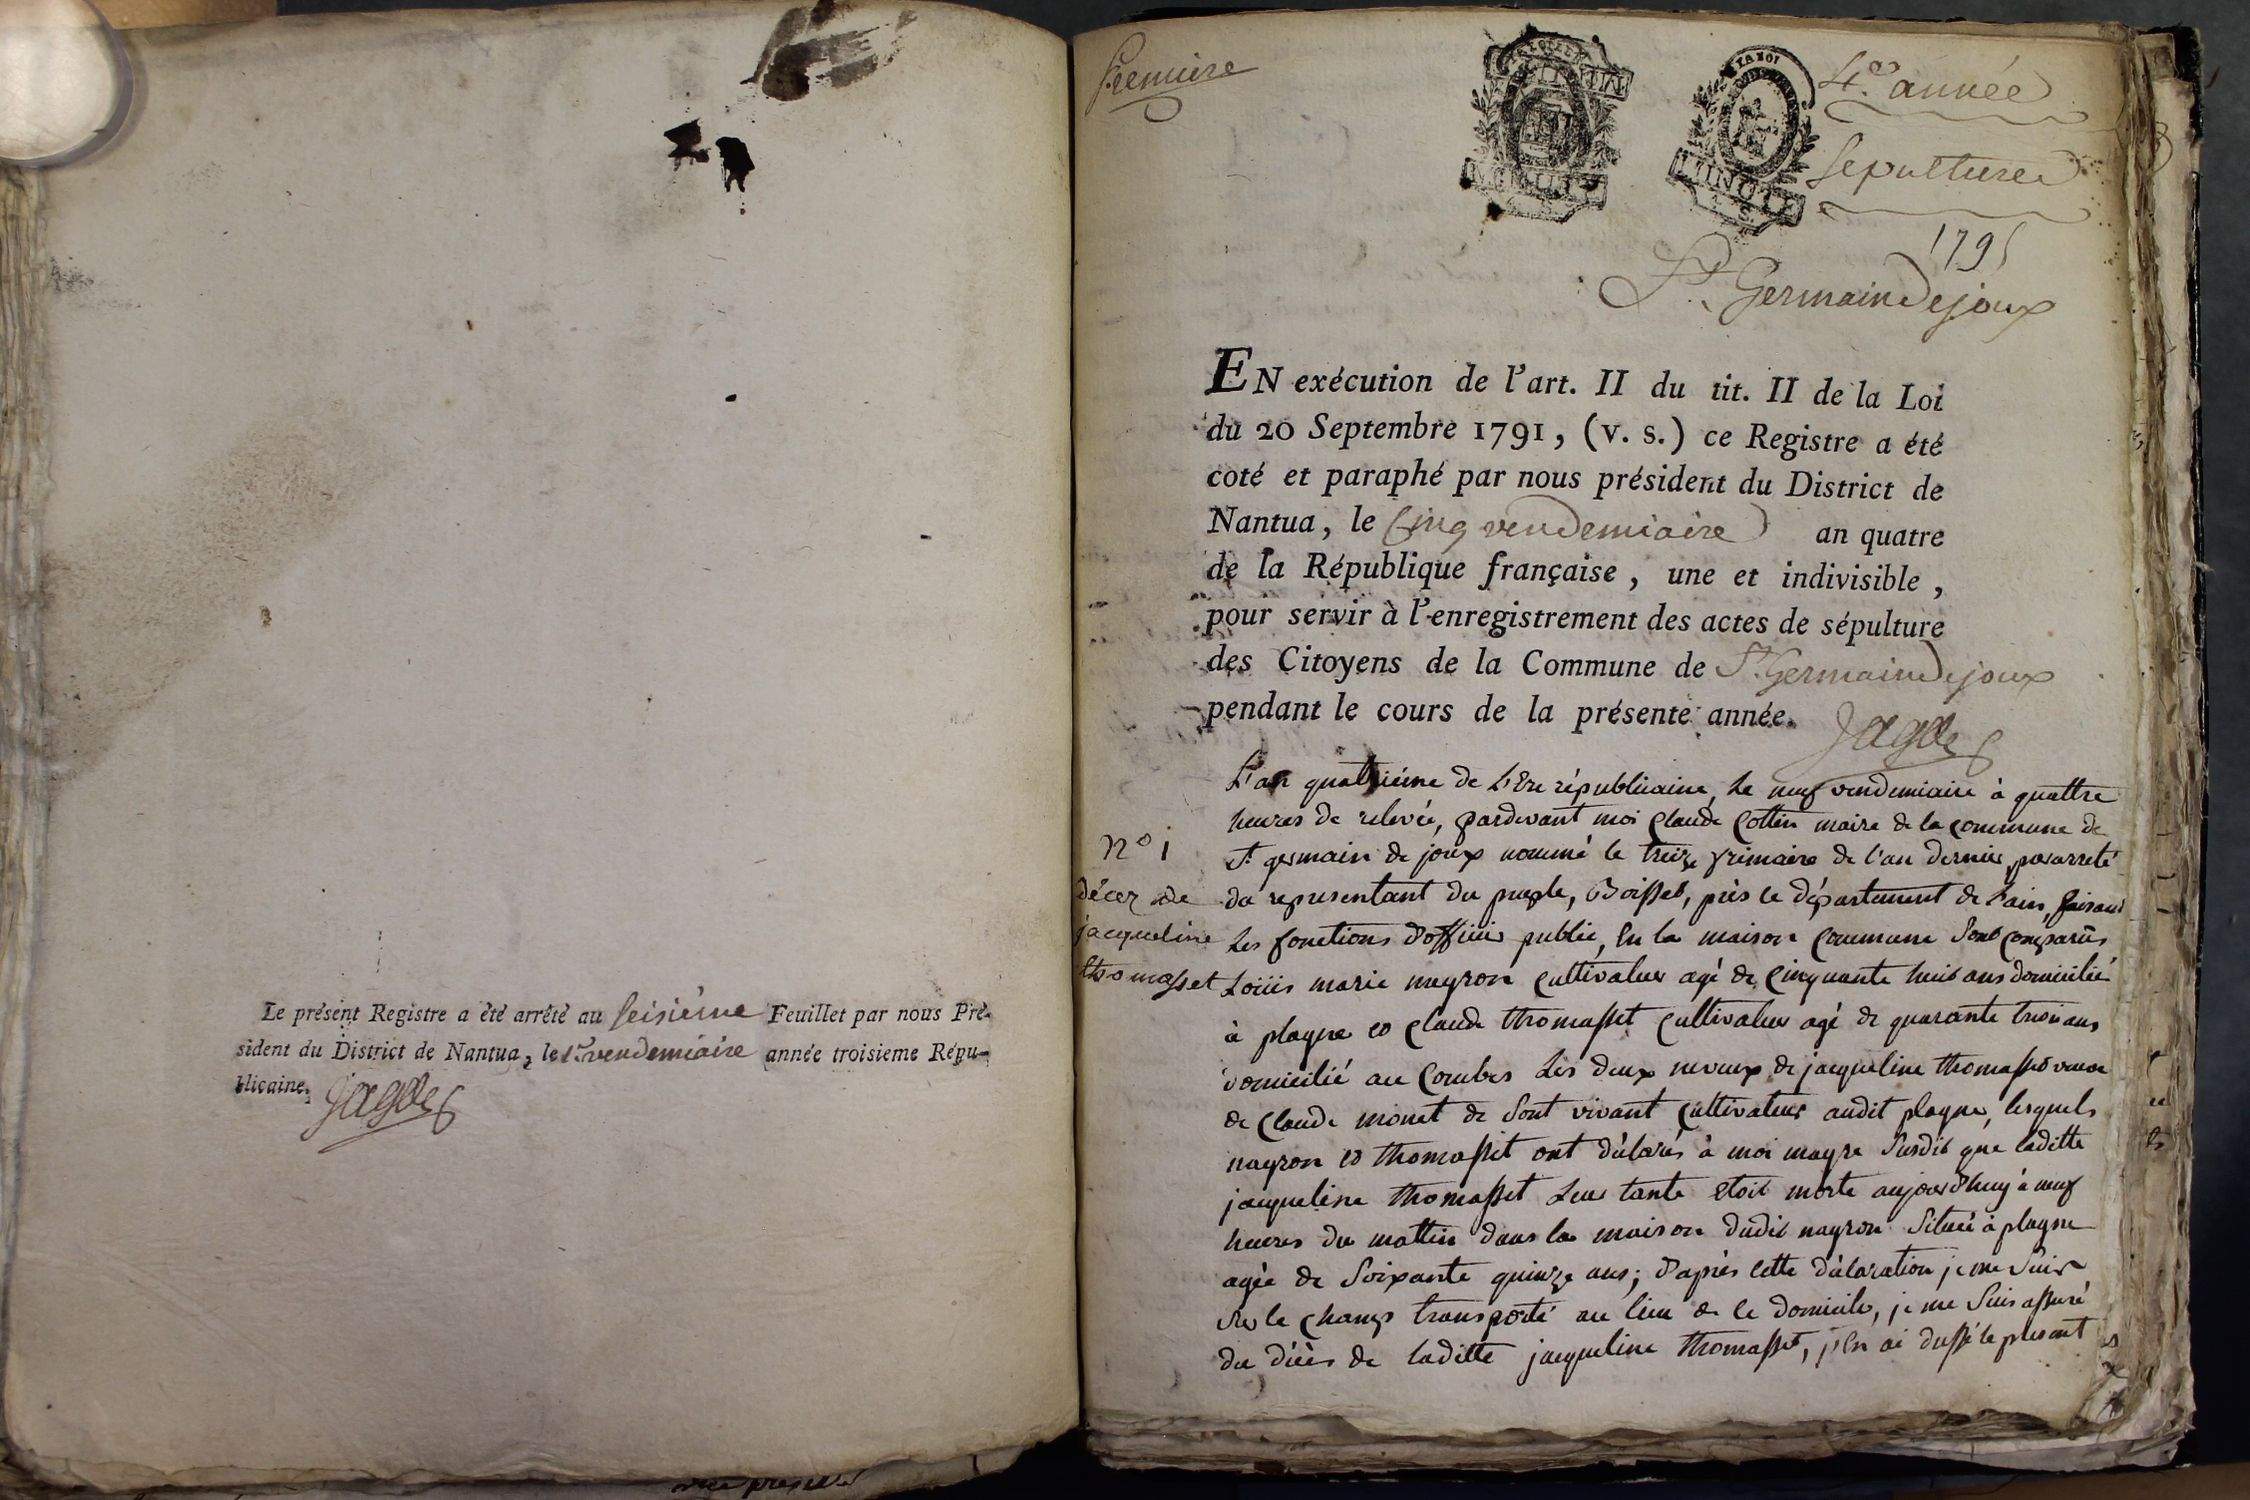 Le présent Registre a été arrêté au seisième Feuillet par nous Pré-
sident du District de Nantua, le 1er vendemiaire année troisieme Répu-
blicaine.
Première
4e année
sepultures
1795
St. Germain de joux
EN exécution de l'art. II du tit. II de la Loi
du 20 Septembre 1791, (v. s.) ce Registre a été
coté et paraphé par nous président du District de
Nantua, le cinq vendemiaire an quatre
de la République française, une et indivisible,
pour servir à l'enregistrement des actes de sépulture
des Citoyens de la Commune de St. Germain de joux
pendant le cours de la présente année.
L'an quatriéme de L'Ere républicaine, Le neuf vendemiaire à quattre
heures de relevée, pardevant moi Claude Cottin maire de la commune de
N° 1
St. germain de joux nommé le treize frimaire de l'an dernier, par arreté
décez de
du representant du peuple, Boisset, près le département de L'ain, faisant
jacqueline
Les fonctions d'officier public, En la maison Commune Sont Comparus
thomasset
Loüis marie neyron cultivateur agé de Cinquante huit ans domicilié
à plagne et Claude thomasset Cultivateur agé de quarante trois ans
domicilié au Combes Les deux neveux de jacqueline thomasset veuve
de Claude monet de Sont vivant Cultivateur audit plagne, lesquels
nayron et thomasset ont déclarés à moi mayre Susdit que laditte
jacqueline thomasset Leur tante etoit morte aujourd'huy à neuf
heures du mattin dans la maison dudit nayron Située à plagne
agée de Soixante quinze ans; d'après cette déclaration je me Suis
sur le champ transporté au lieu de ce domicile, je me Suis assuré
du décès de laditte jacqueline thomasset, j'En ai dressé le present